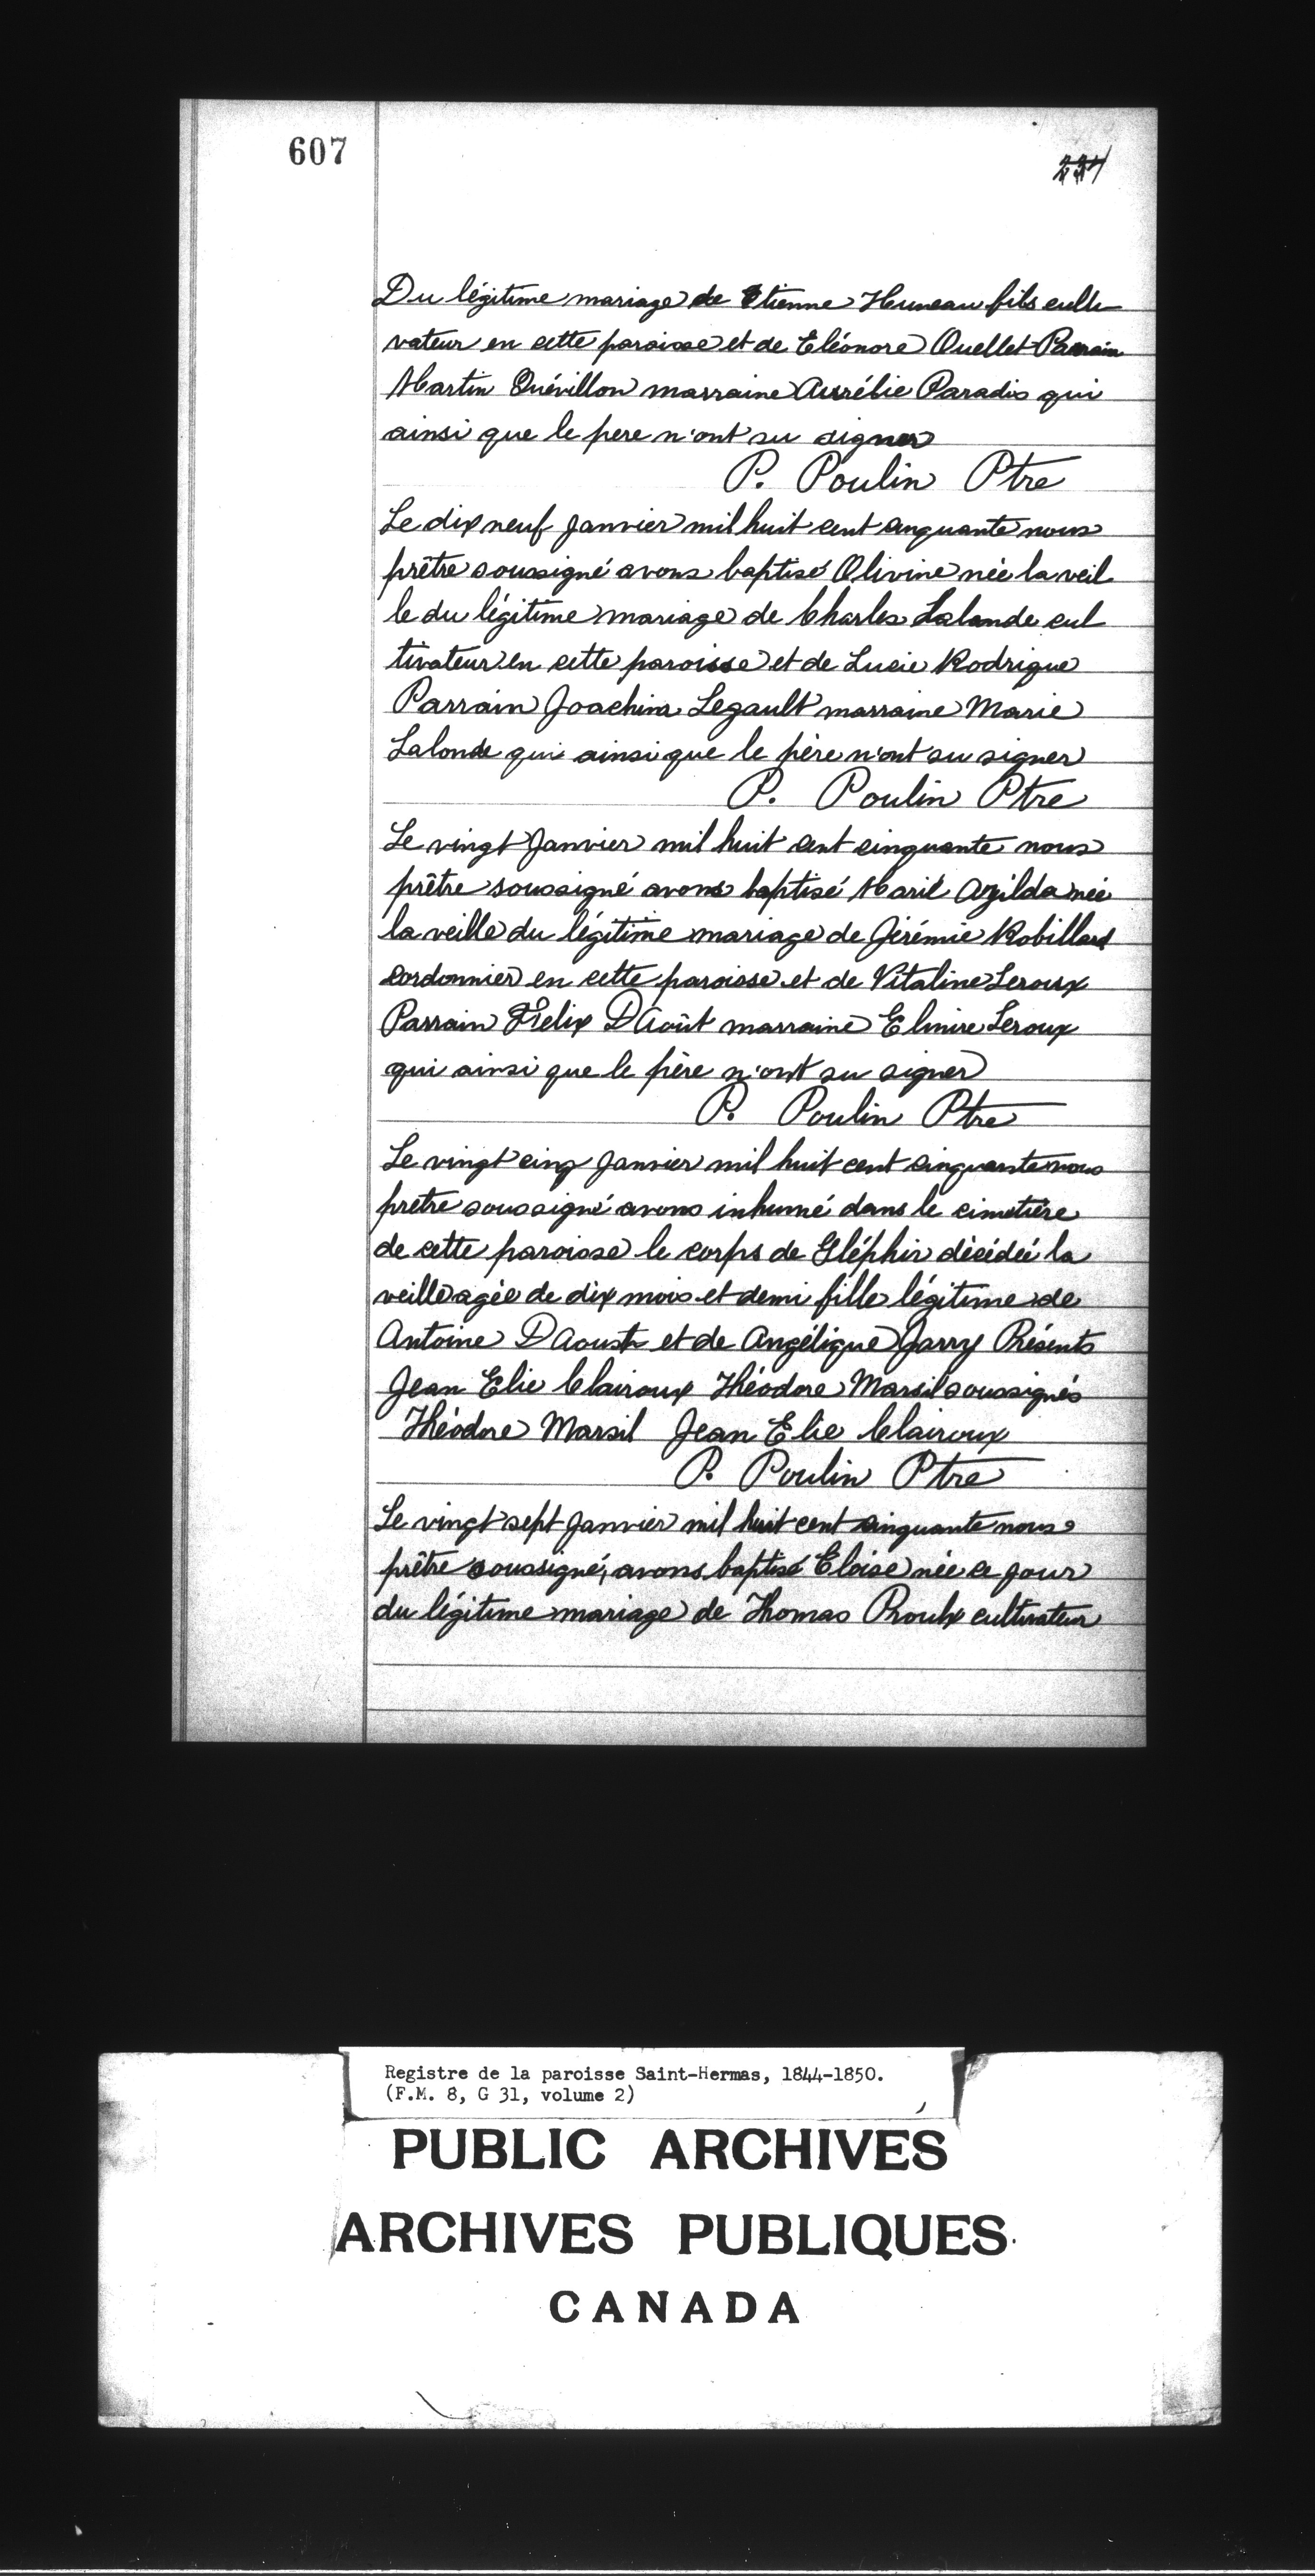 607
Du légitime mariage de Etienne Huneau fils culti
vateur en cette paroisse et de Eléonore Ouellet Parrain
Martin Quévillon marraine Aurélie Paradis qui
ainsi que le pere n'ont su signer
P. Poulin Ptre
Le dix neuf Janvier mil huit cent cinquante nous
prêtre soussigné avons baptisé Olivine née la veil
le du légitime mariage de Charles Lalonde cul
tivateur en cette paroisse et de Lucie Rodrigue
Parrain Joachim Legault marraine Marie
Lalonde qui ainsi que le père n'ont su signer
P. Poulin Ptre
Le vingt Janvier mil huit cent cinquante nous
prêtre soussigné avons baptisé Marie Azilda née
la veille du légitime mariage de Jérémie Robillard
cordonnier en cette paroisse et de Vitaline Leroux
Parrain Félix D'Août marraine Elmire Leroux
qui ainsi que le père n'ont su signer
P. Poulin Ptre
Le vingt cinq Janvier mil huit cent cinquante nous
prêtre soussigné avons inhumé dans le cimetière
de cette paroisse le corps de Gléphir décédée la
veille agée de dix mois et demi fille légitime de
Antoine D Aoust et de Angélique Jarry Présents
Jean Elie Clairoux Théodore Marsil soussignés
Théodore Marsil Jean Elie Clairoux
P. Poulin Ptre
Le vingt sept Janvier mil huit cent cinquante nous
prêtre soussigné, avons baptisé Eloise née ce jour
du légitime mariage de Thomas Proulx cultivateur
Registre de la paroisse Saint-Hermas, 1844-1850.
(F.M. 8, G 31, volume 2)
PUBLIC ARCHIVES
ARCHIVES PUBLIQUES
CANADA